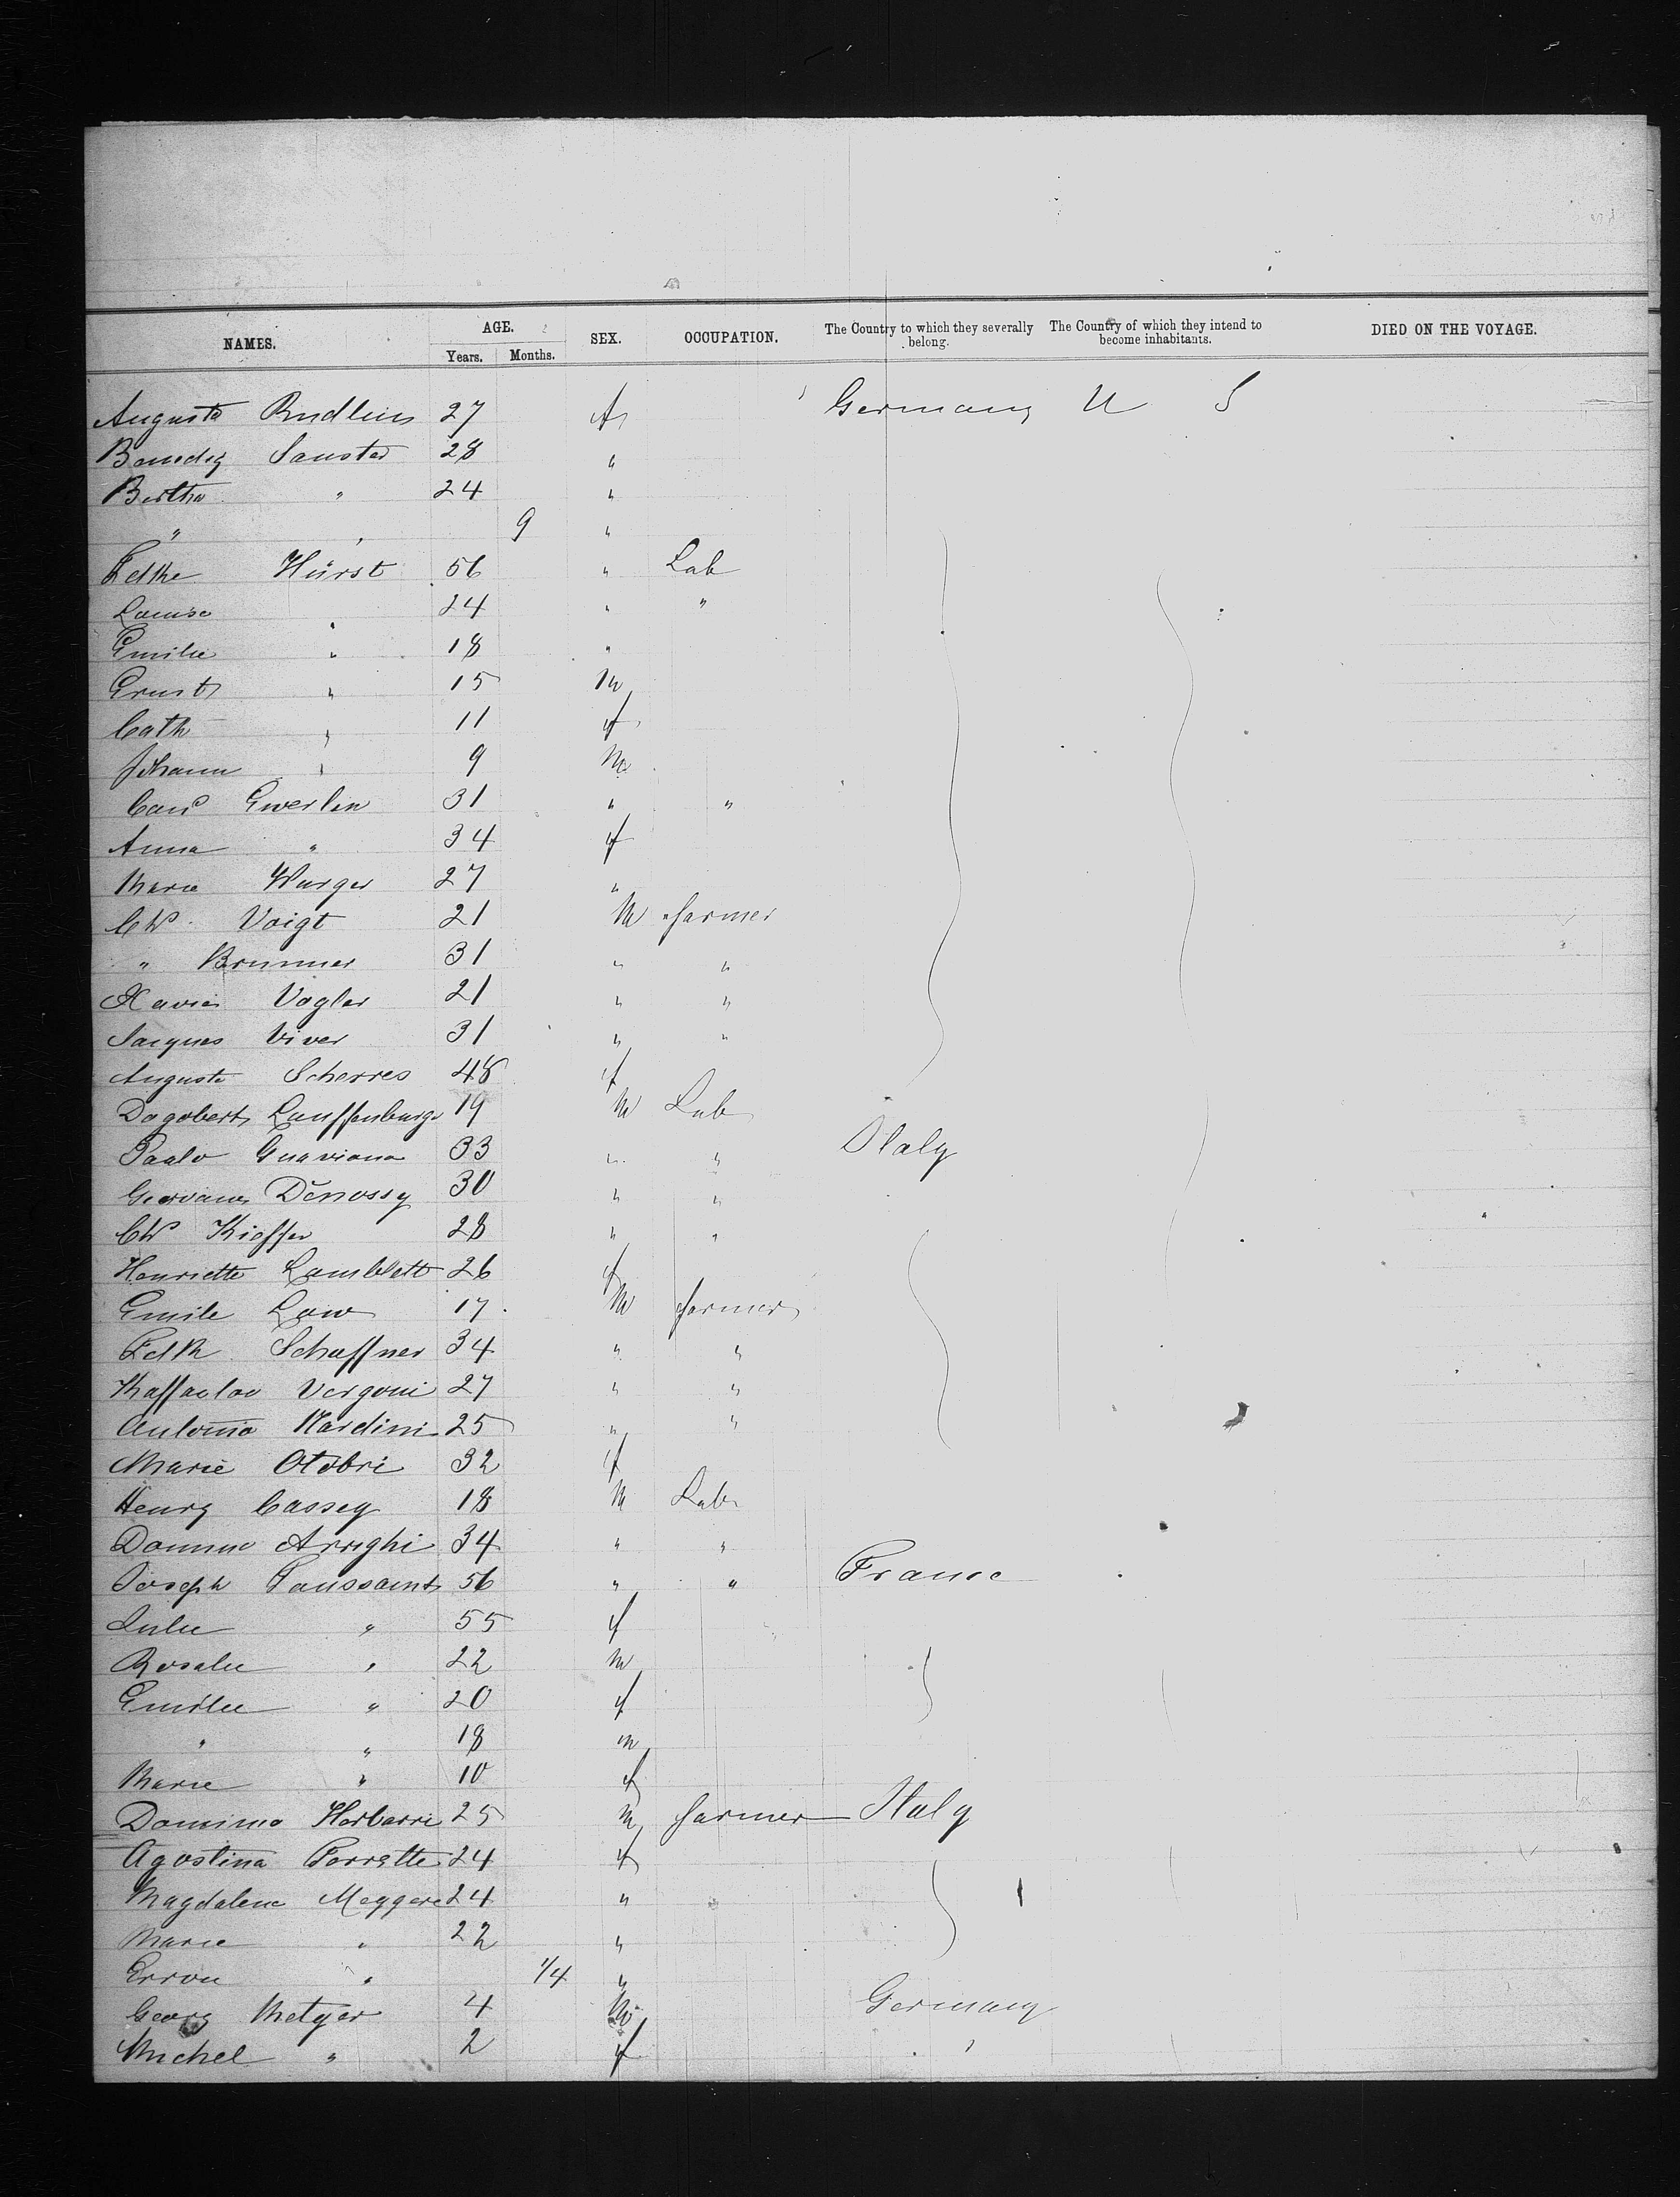 NAMES. AGE. Years. Months. SEX. OCCUPATION. The Country to which they severally belong. The Country of which they intend to become inhabitants. DIED ON THE VOYAGE.
Augusta 27 f Germany U S
28 "
Bertha " 24 "
" " 9 "
Hürst 56 " Lab
Louise " 24 " "
Emilie " 18 "
Ernst " 15 M
Cath " 11 f
Johann " 9 M
Gwerlin 31 " "
Anna " 34 f
Marie Wurger 27 "
Voigt 21 M farmer
" Brunner 31 " "
Xavier Vogler 21 " "
Jacques Viver 31 " "
Auguste Scherres 48 f
Dagobert Lauffenburge 19 M Lab
Paolo Guaviana 33 " " Italy
Denossy 30 " "
Kieffer 28 " "
Henriette Lamblett 26 f
Emile Low 17 M farmer
Schaffner 34 " "
Vergoni 27 " "
Antonio Nardini 25 " "
Marie Otobri 32 f
Henry Cassey 18 M Lab
Arrighi 34 " "
Joseph Toussaint 56 " " France
" 55 f
Rosalie " 22 M
Emilie " 20 f
" " 18 m
Marie " 10 f
Horbarri 25 M farmer Italy
Agostina Porratte 24 f
Magdalena Meggere 24 "
Marie " 22 "
" 1/4 "
Georg Metzger 4 M Germany
Michel " 2 f "